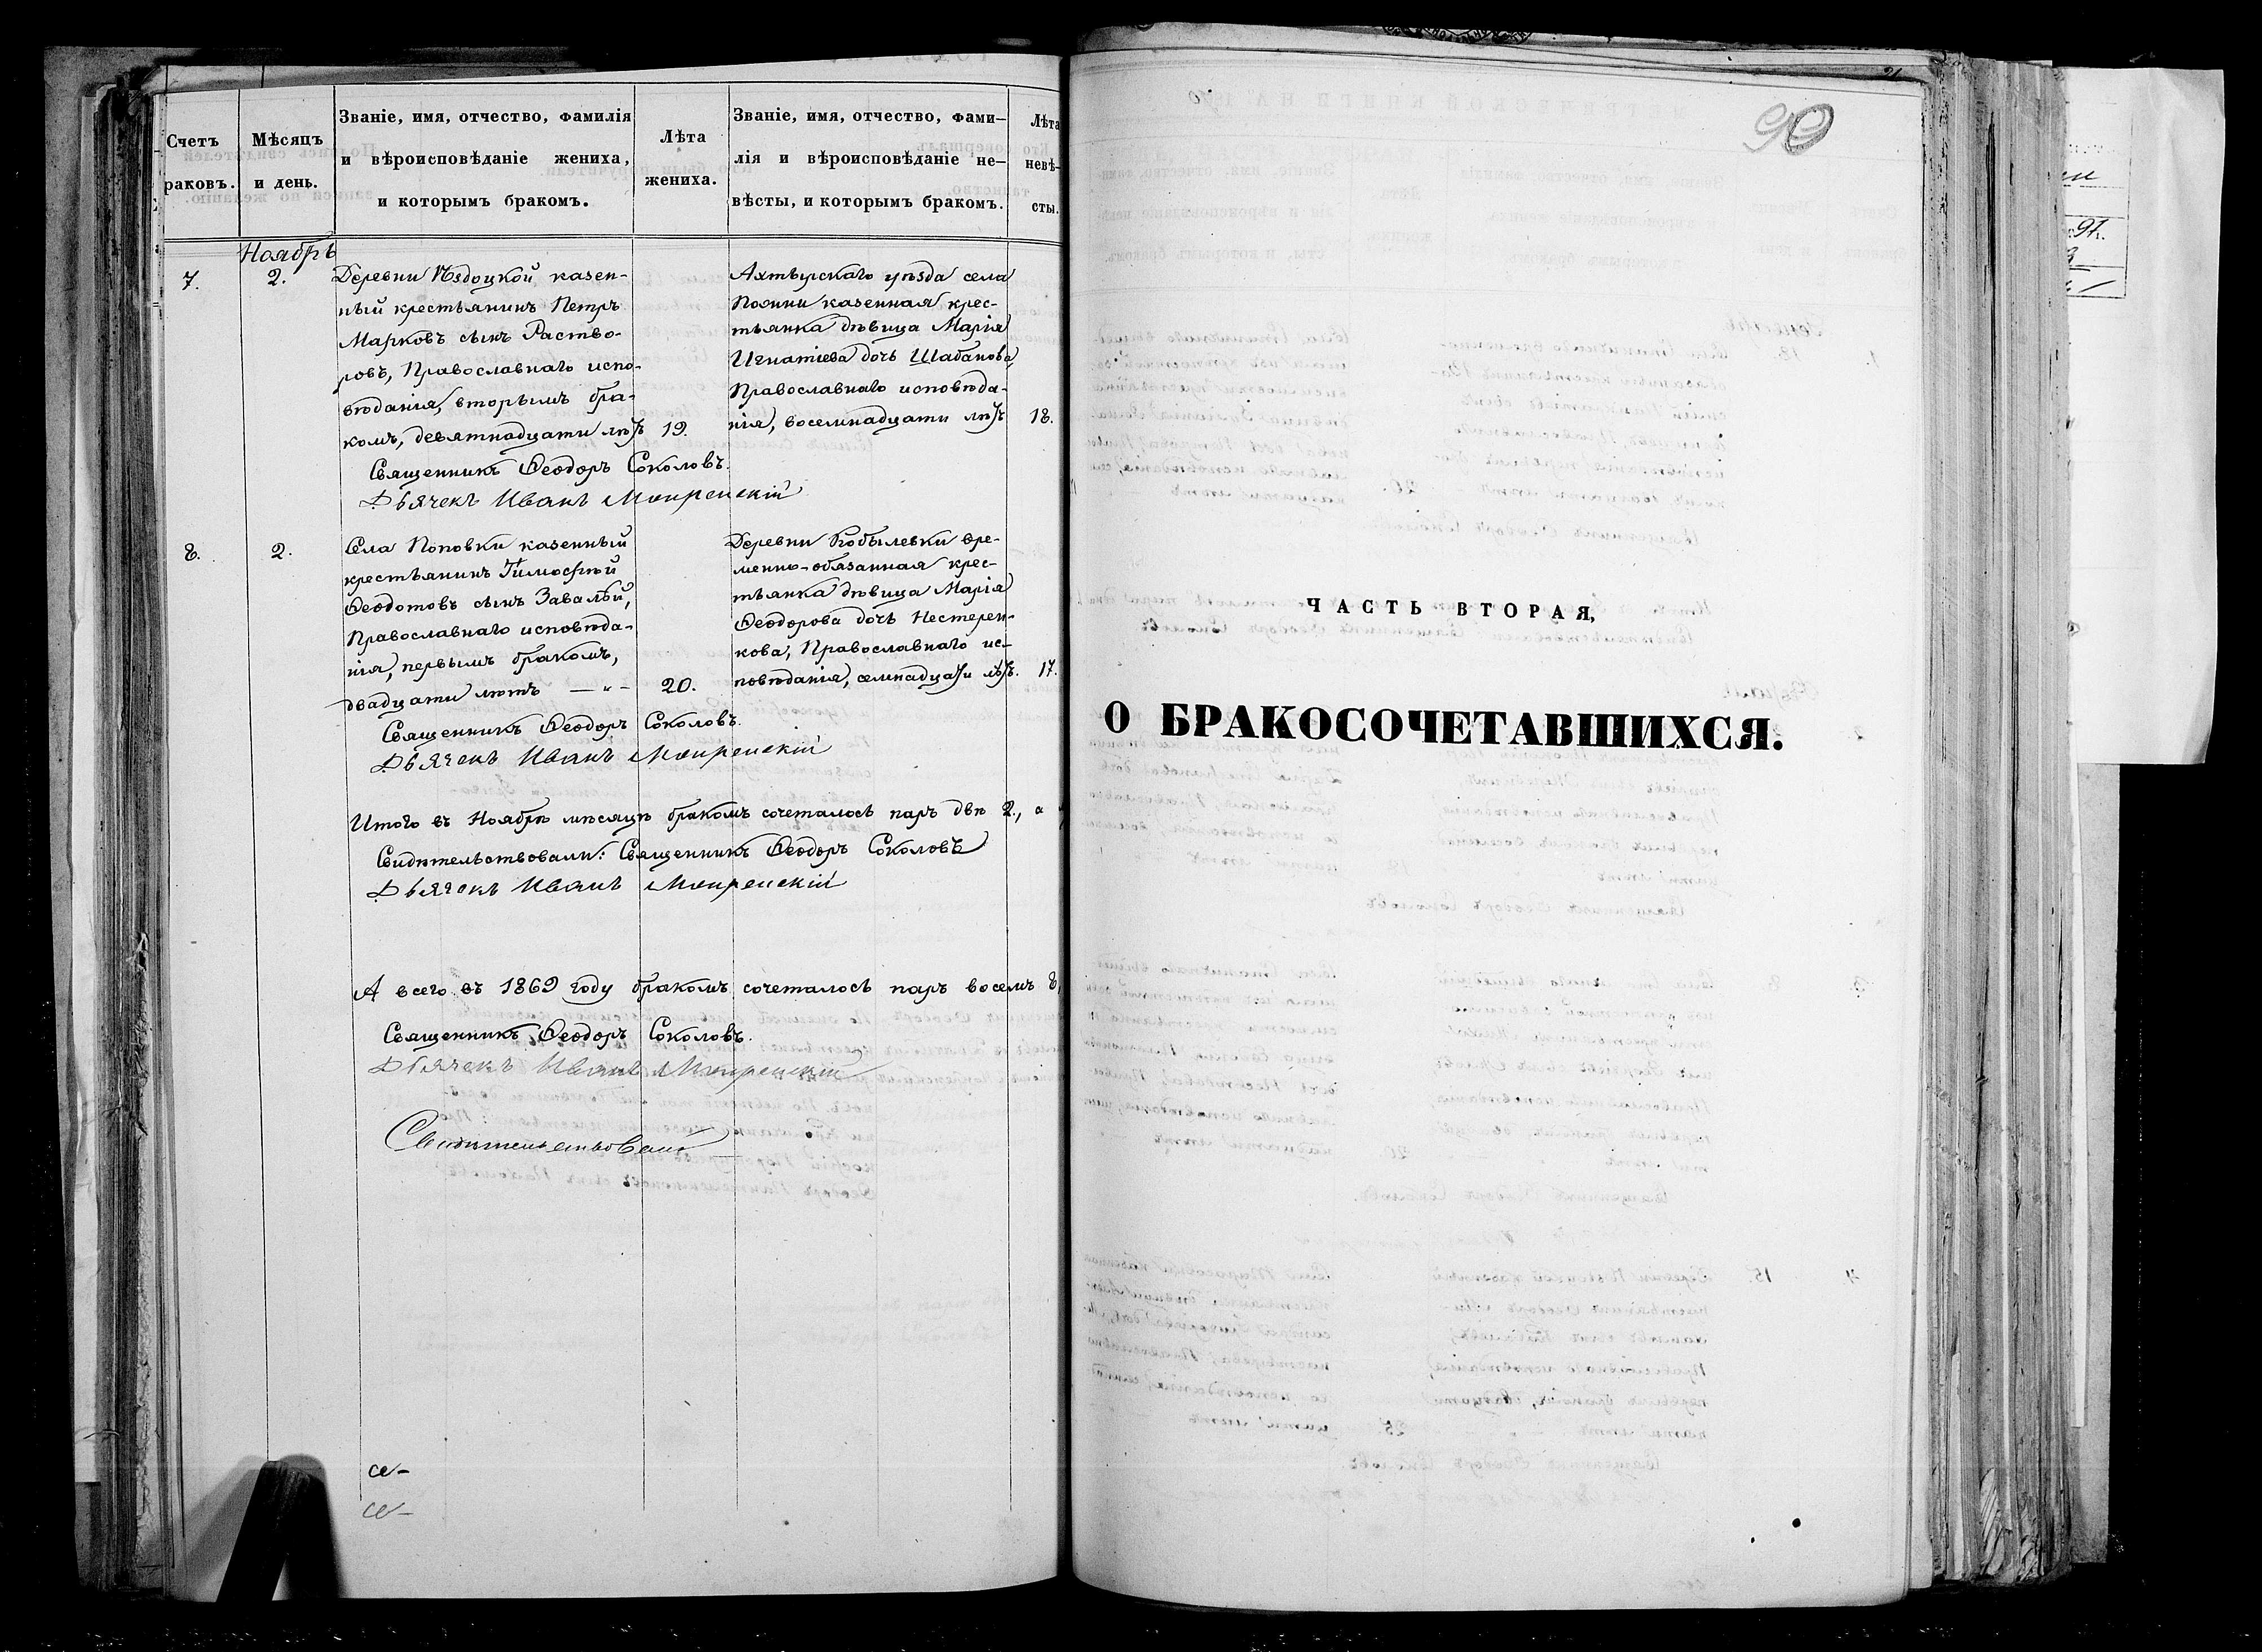 Счетъ
раковъ.
Мѣсяцъ
и день.
Званіе, имя, отчество, фамилія
и вѣроисповѣданіе жениха,
и которымъ бракомъ.
Лѣта
жениха.
Званіе, имя, отчество, фами–
лія и вѣроисповѣданіе не–
вѣсты, и которымъ бракомъ.
Лѣта
невѣ–
сты.
Ноябрь
7.
2.
Деревни казен-
ный крестьянинъ Петръ
Марковъ сынъ Раство-
ровъ, Православнаго испо-
вѣданія, вторымъ бра-
комъ, девятнадцати лѣтъ
19.
Ахтырскаго уѣзда села
казенная крес-
тьянка дѣвица Марія
Игнатіева дочь Шабанова,
Православнаго исповѣда-
нія, восемнадцати лѣтъ
18.
Священникъ Ѳеодоръ Соколовъ.
Дьячекъ Иванъ
8.
2.
Села Поповки казенный
крестьянинъ Тимоѳей
Ѳеодотовъ сынъ Завалый,
Православнаго исповѣда-
нія, первымъ бракомъ,
двадцати лѣтъ — „ –
20.
Деревни Кобылевки вре-
менно-обязанная крес-
тьянка дѣвица Марія
Ѳеодорова дочь Нестерен-
кова, Православнаго ис-
повѣданія, семнадцати лѣтъ.
17.
Священникъ Ѳеодоръ Соколовъ.
Дьячекъ Иванъ
Итого въ Ноябрѣ мѣсяцѣ бракомъ сочеталось паръ двѣ 2., а
Свидѣтельствовали: Священникъ Ѳеодоръ Соколовъ
Дьячекъ Иванъ
А всего въ 1869 году бракомъ сочеталось паръ восемь 8,
Священникъ Ѳеодоръ Соколовъ.
Дьячекъ Иванъ
90
ЧАСТЬ ВТОРАЯ,
О БРАКОСОЧЕТАВШИХСЯ.